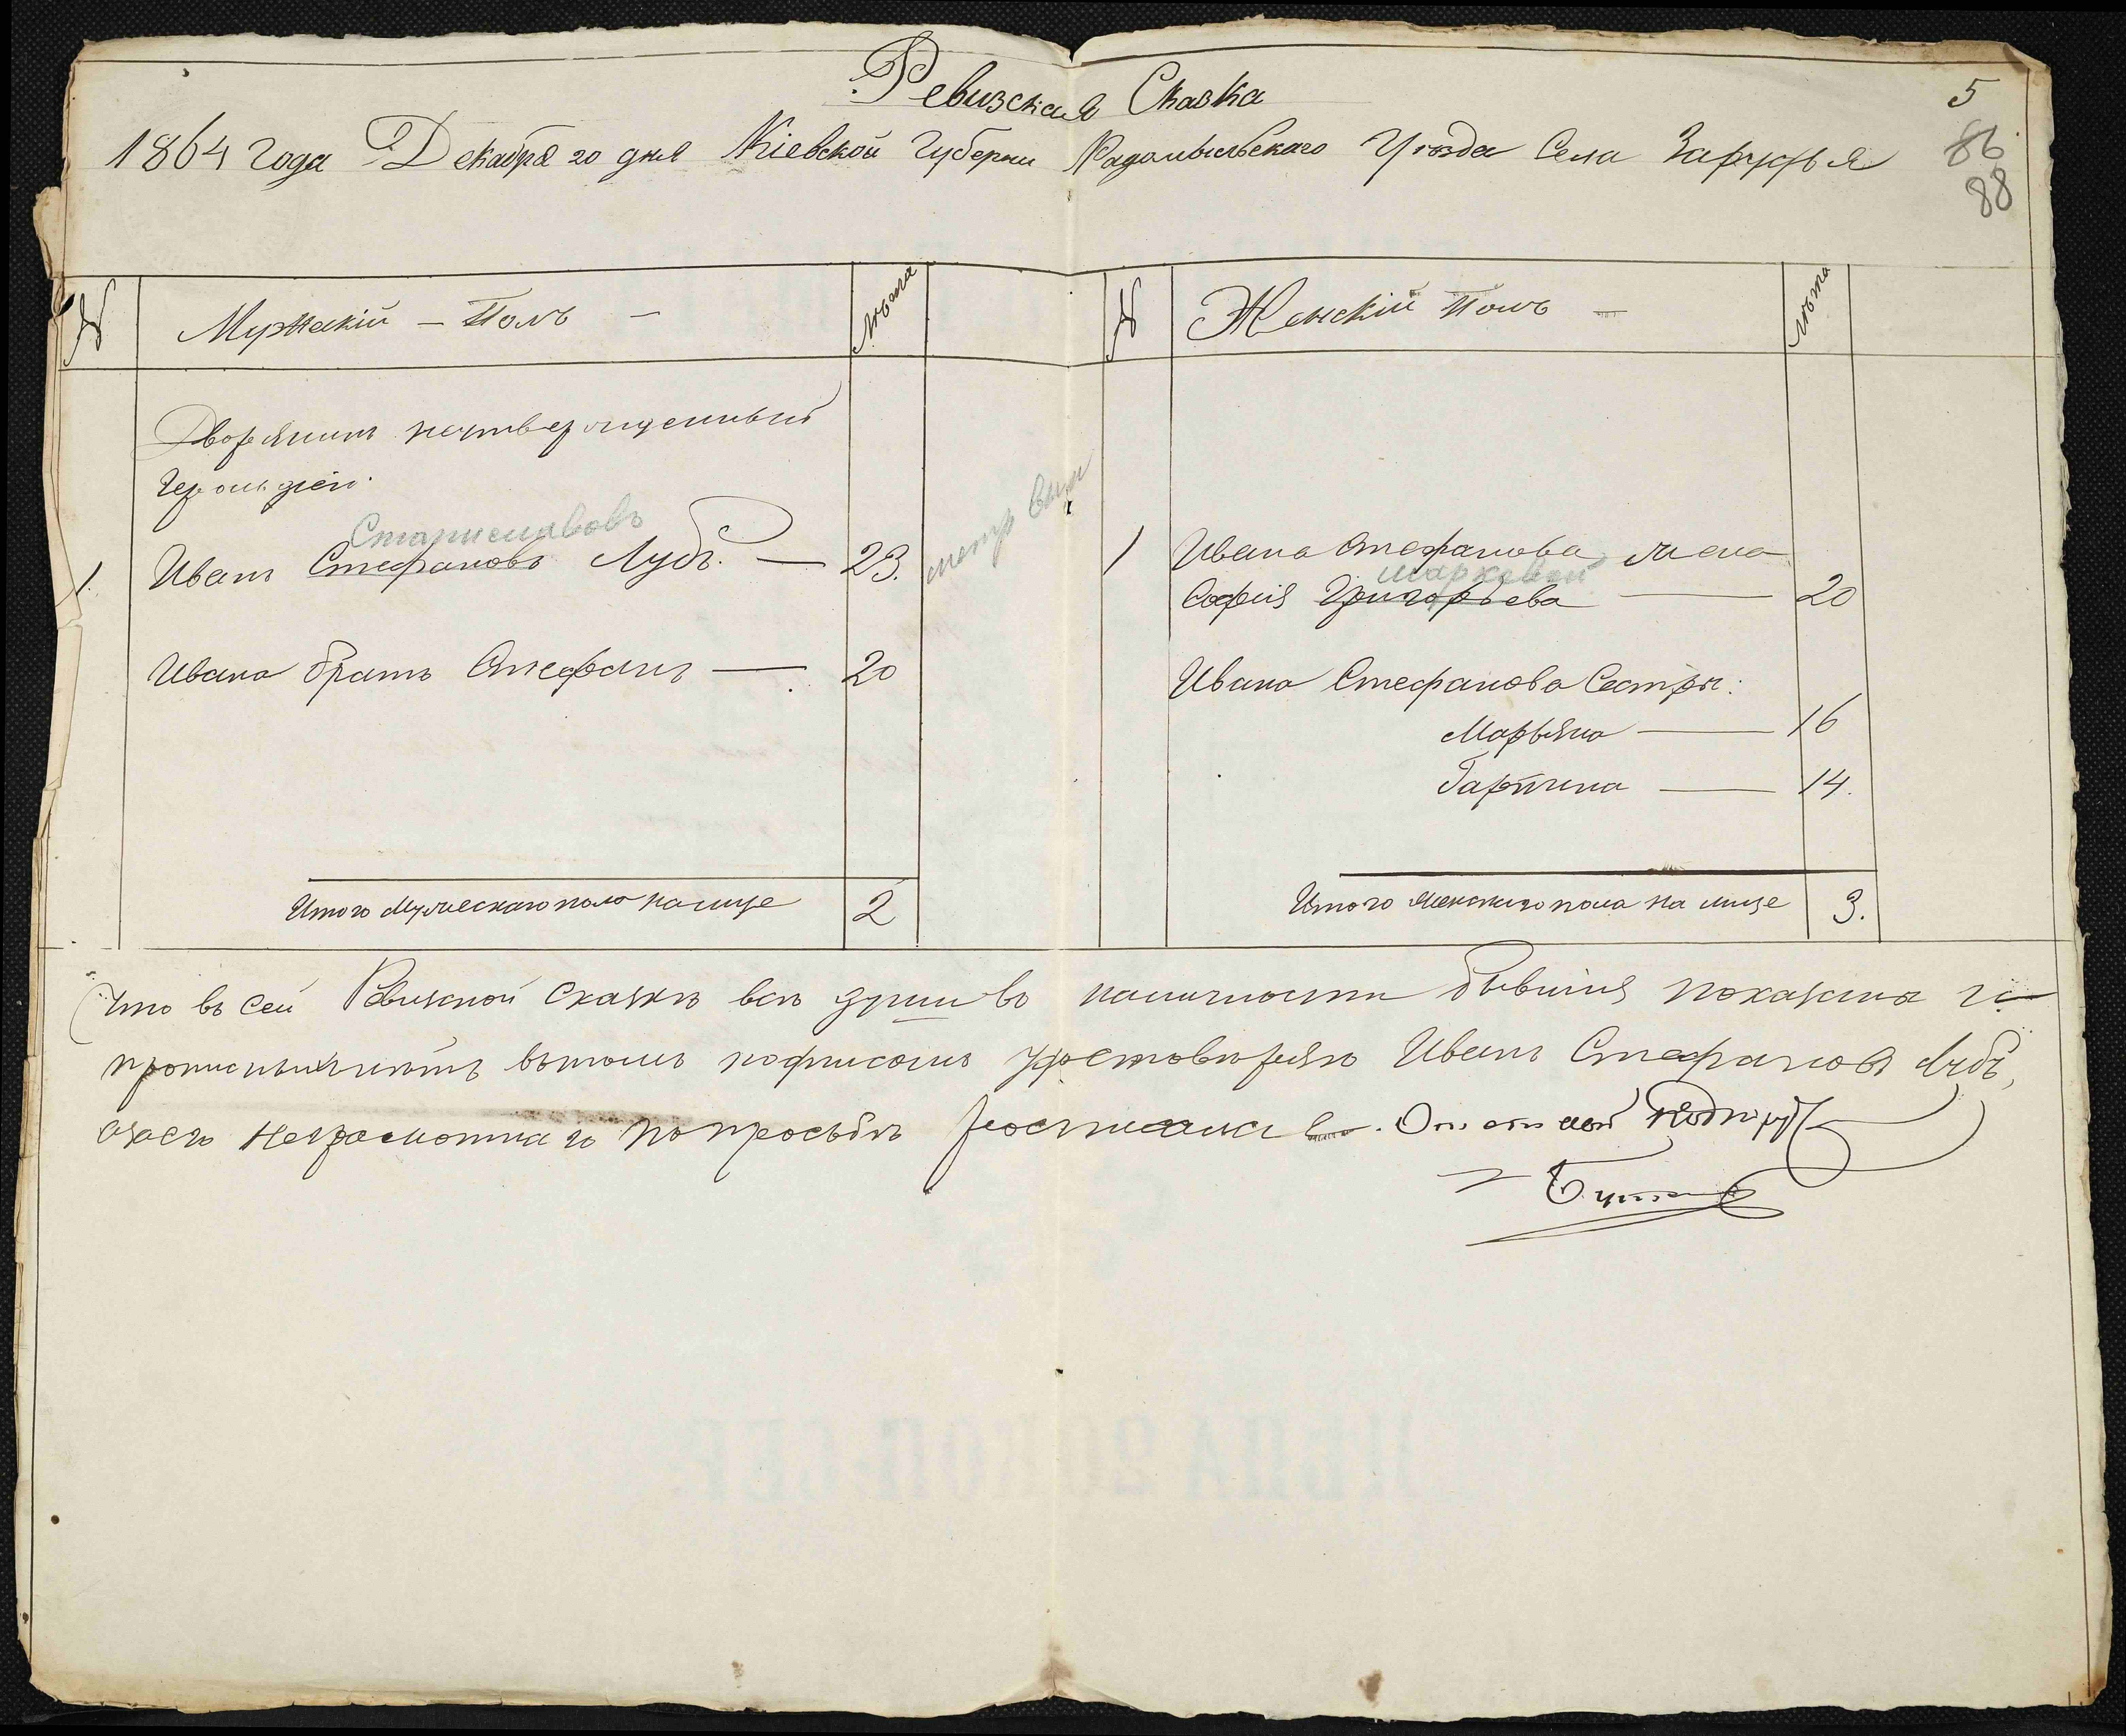 Ревизская Сказка
5
1864 года Декабря 20 дня Кіевской Губерніи Радомысльскаго Уѣзда Села Зарудья
86
88
№ Мужскій – Полъ – лѣта № Женскій Полъ – лѣта
Дворянинъ потвержденный
Герольдіей.
Станиславовъ
1. Иванъ Стефановъ Лубъ. — 23.
1 Ивана Стефанова жена
Марковой
Софія Григорьева — 20
Ивана братъ Стефанъ — 20
Ивана Стефанова Сестры:
Марьяна — 16
Гарпина — 14.
Итого Мужескаго пола на лице 2
Итого Женскаго пола на лице 3.
Что въ сей Ревизкой Сказкѣ всѣ души въ наличности бывшія показаны и
прописныхъ нѣтъ въ томъ подписомъ удостовѣряю Иванъ Стефановъ Лубъ,
а за его неграмотнаго по просьбѣ росписался